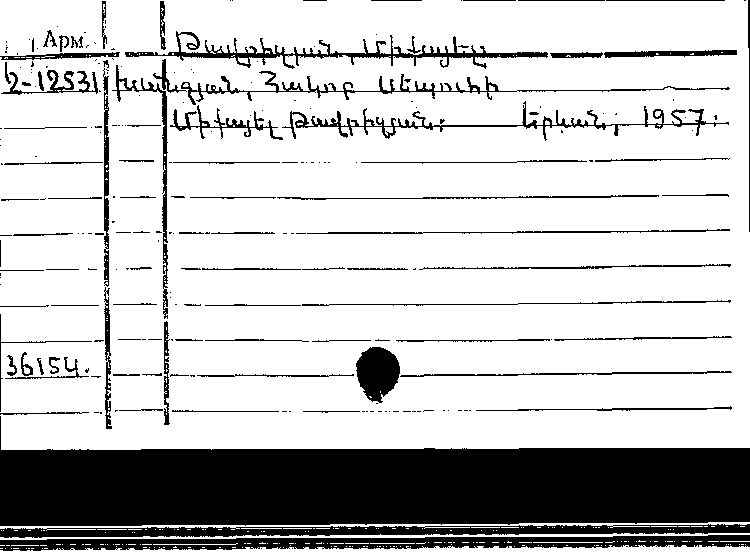 Арм. Թավրիզյան, Միքայել
2-12531 Խանզադյան, Հակոբ Սեպուհի
Միքայել Թավրիզյան: Երևան, 1957:
36154.